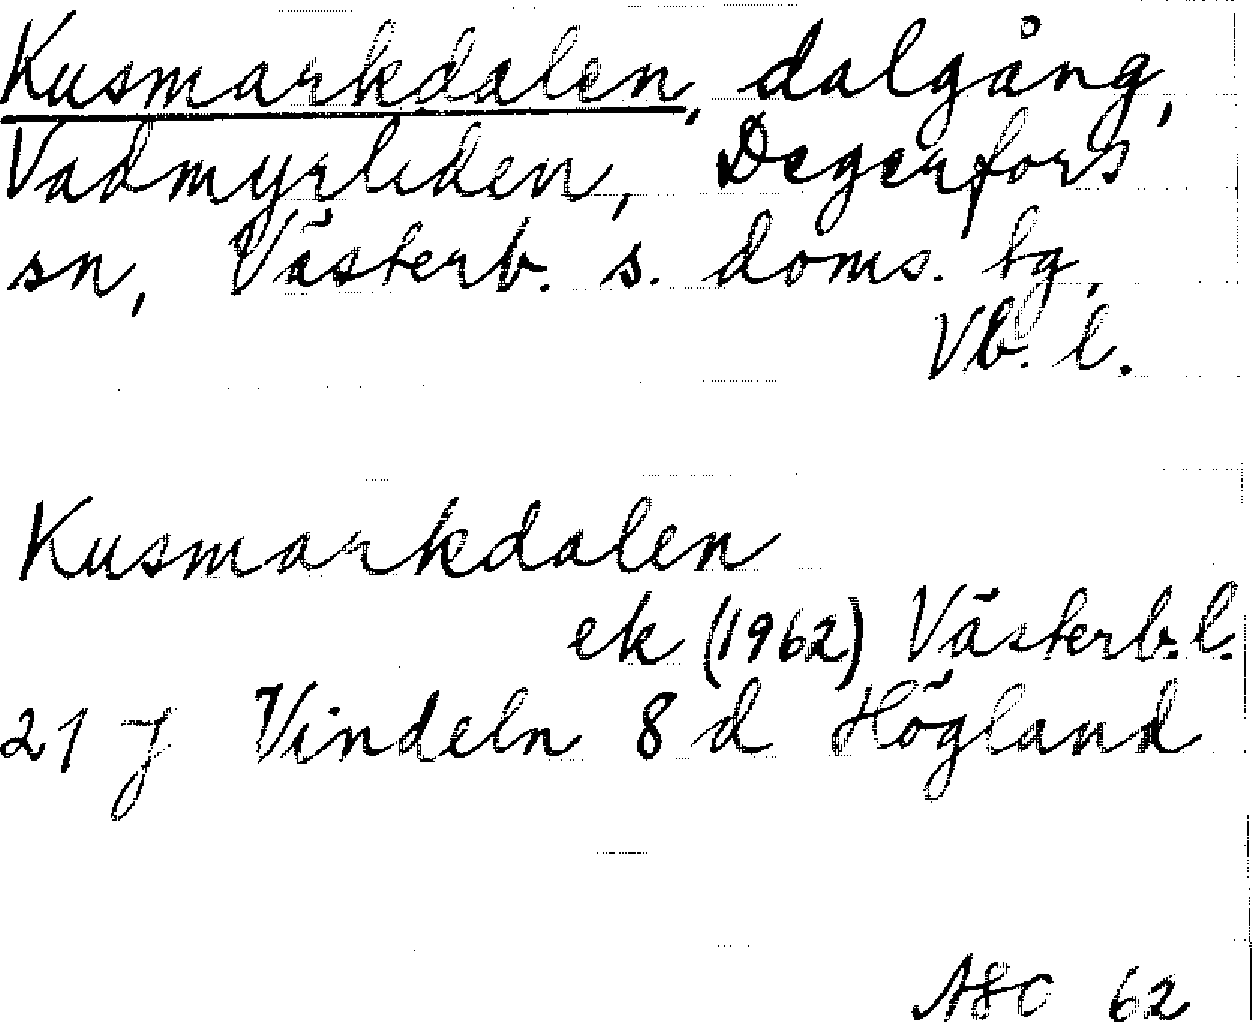 Kusmarkdalen, dalgång,
Vadmyrliden, Degerfors
sn, Västerb. s. doms. tg,
Vb. l.
Kusmarkdalen
ek (1962) Västerb. l.
21 J Vindeln 8 d Högland
62